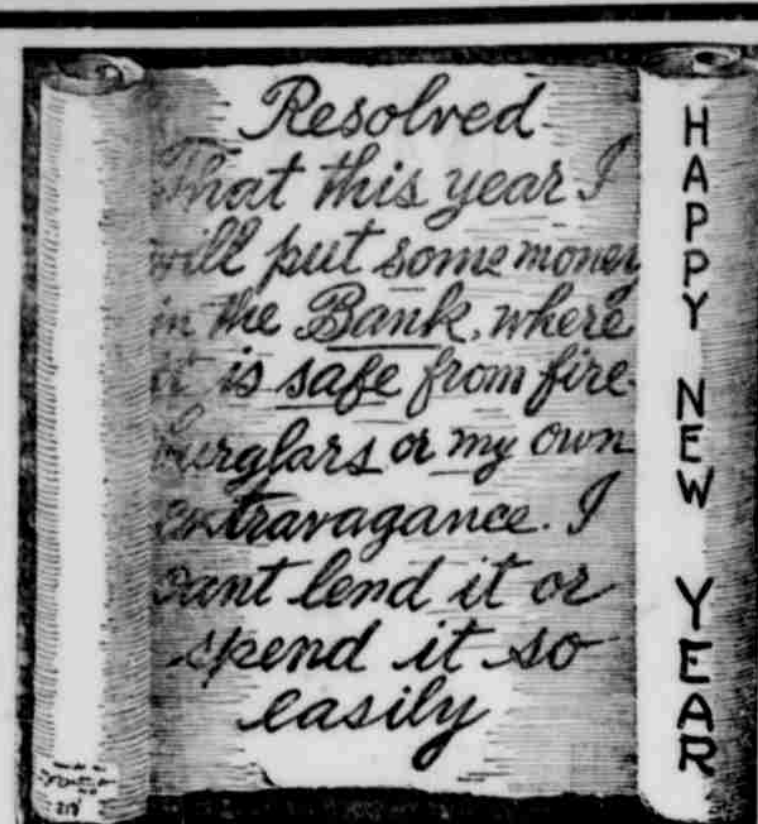 Resolved
That this year I
will put some money
in the Bank, where
it is safe from fire-
burglars or my own
extravagance. I
cant lend it or
spend it so
easily
HAPPY NEW YEAR